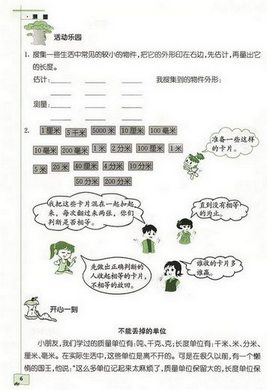 测量
活动乐园
1. 搜集一些生活中常见的较小的物件，把它的外形印在右边，先估计，再量出它
的长度。
估计：
我搜集到的物件外形：
测量：
2.
1厘米 5千米 5000米 10厘米 100毫米
10毫米 200毫米 1米 2分米 100厘米 1米
5米 20米 40厘米 4分米 10分米
50分米 200分米
准备一些这样
的卡片。
我把这些卡片混在一起扣起
来，每次翻过来两张，你们
判断是否相等。
直到没有相等
的为止。
先做出正确判断的
人收起相等的卡片，
不相等的放回。
谁收的卡片多
谁赢。
开心一刻
不能丢掉的单位
小朋友，我们学过的质量单位有：吨、千克、克；长度单位有：千米、米、分米、
厘米、毫米。在实际生活中，这些单位是离不开的。可是在很久以前，有一个懒
惰的国王，他说：“这么多单位记起来太麻烦了，质量单位保留大的，长度单位保
6